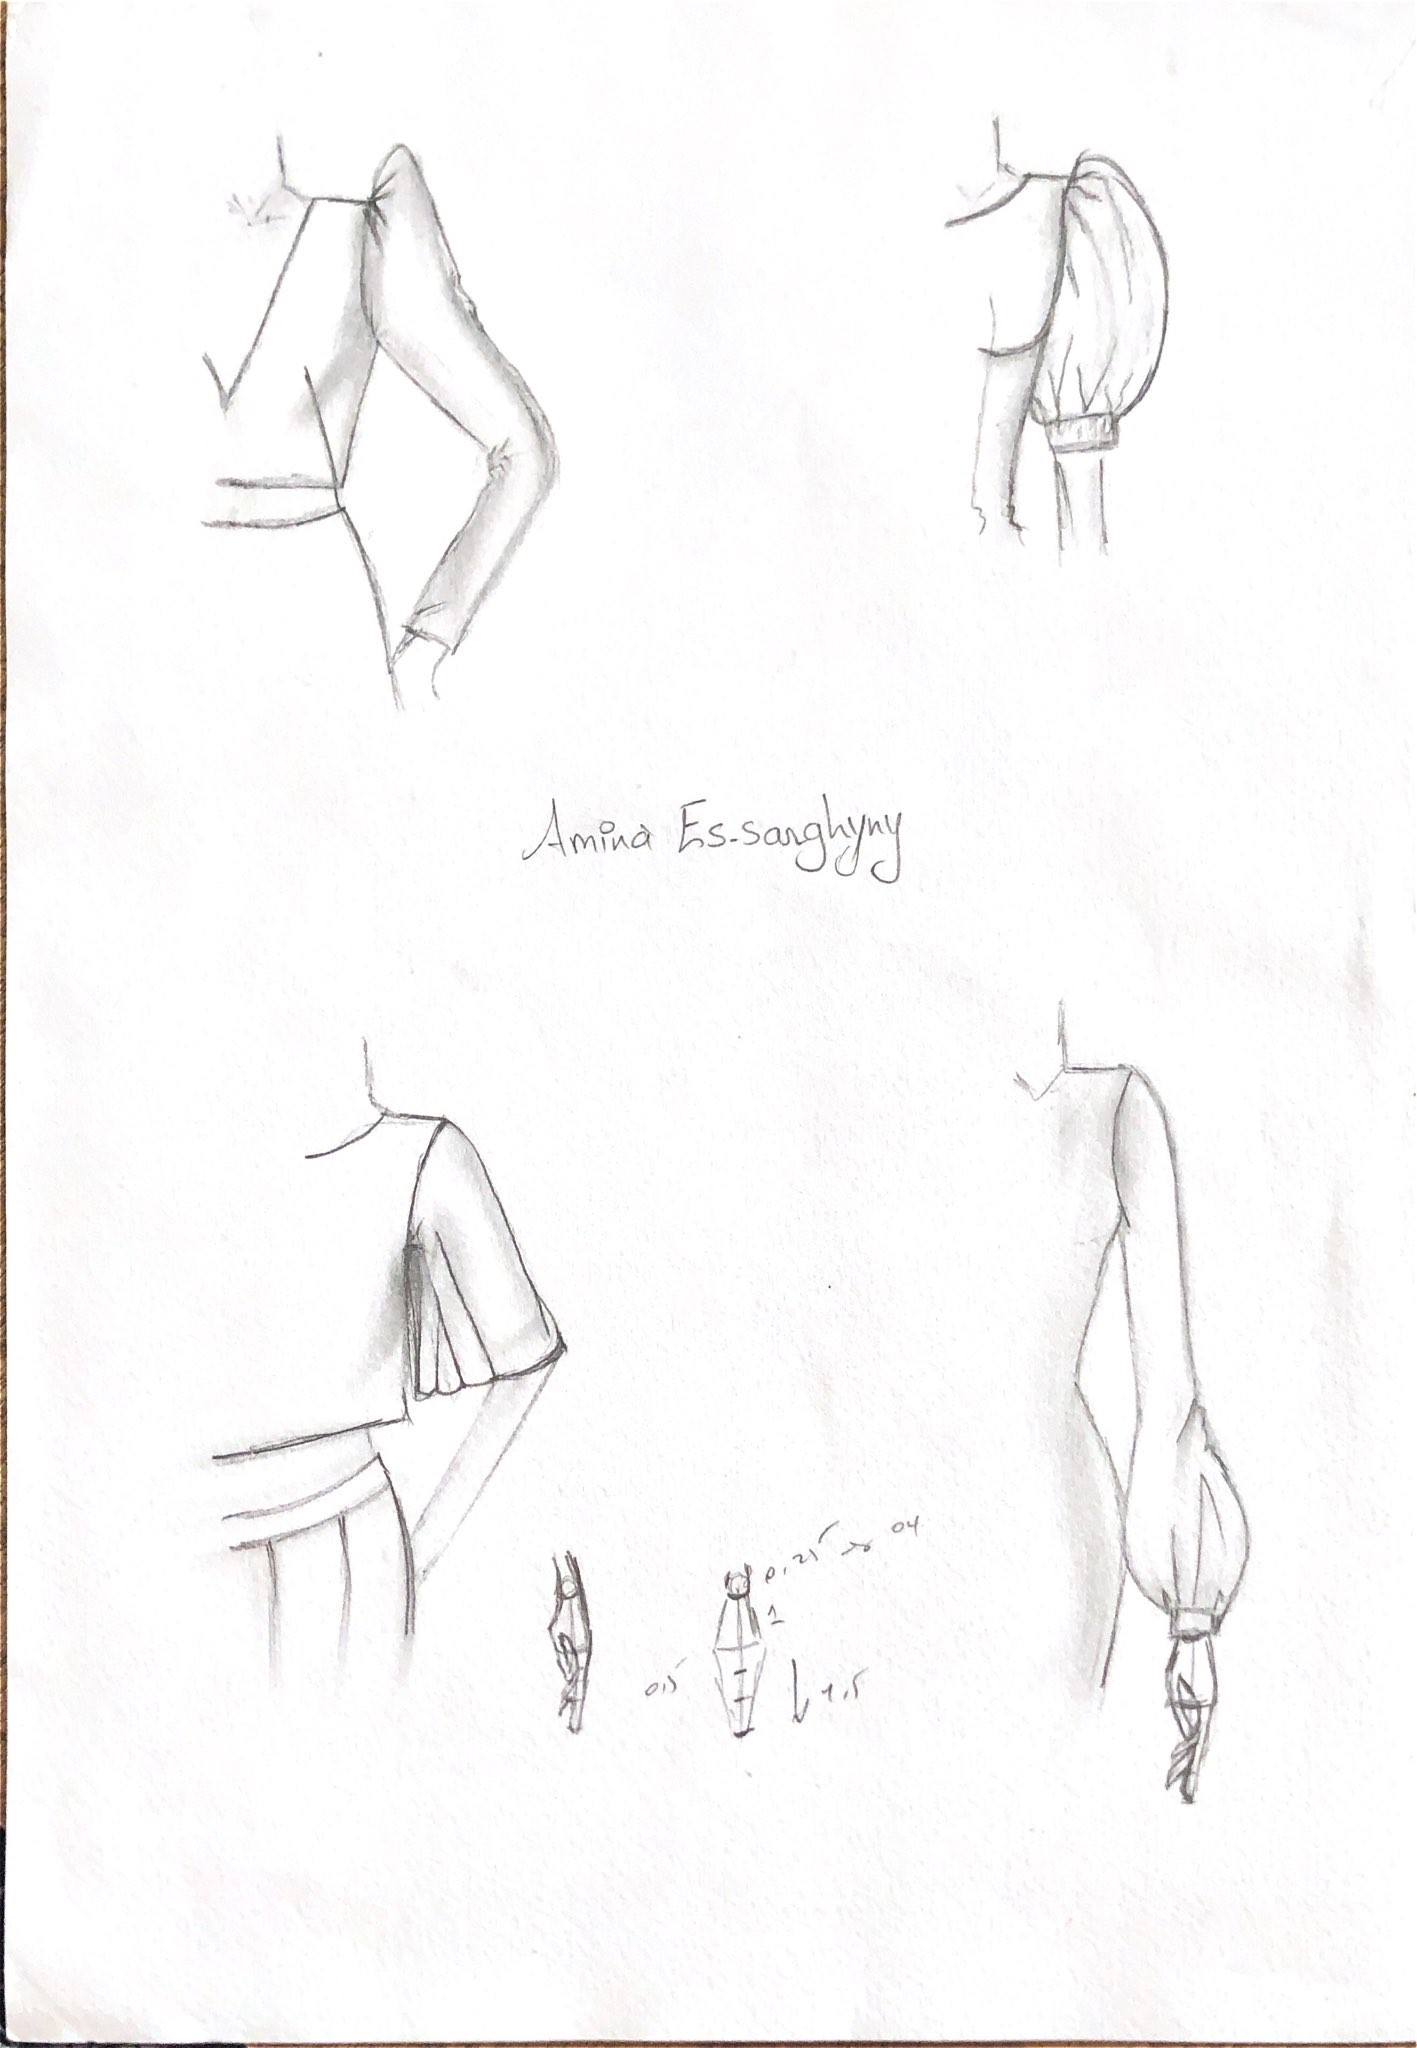 Amina Es-sarghyny
0,25 → 04
1
0,5
1,5